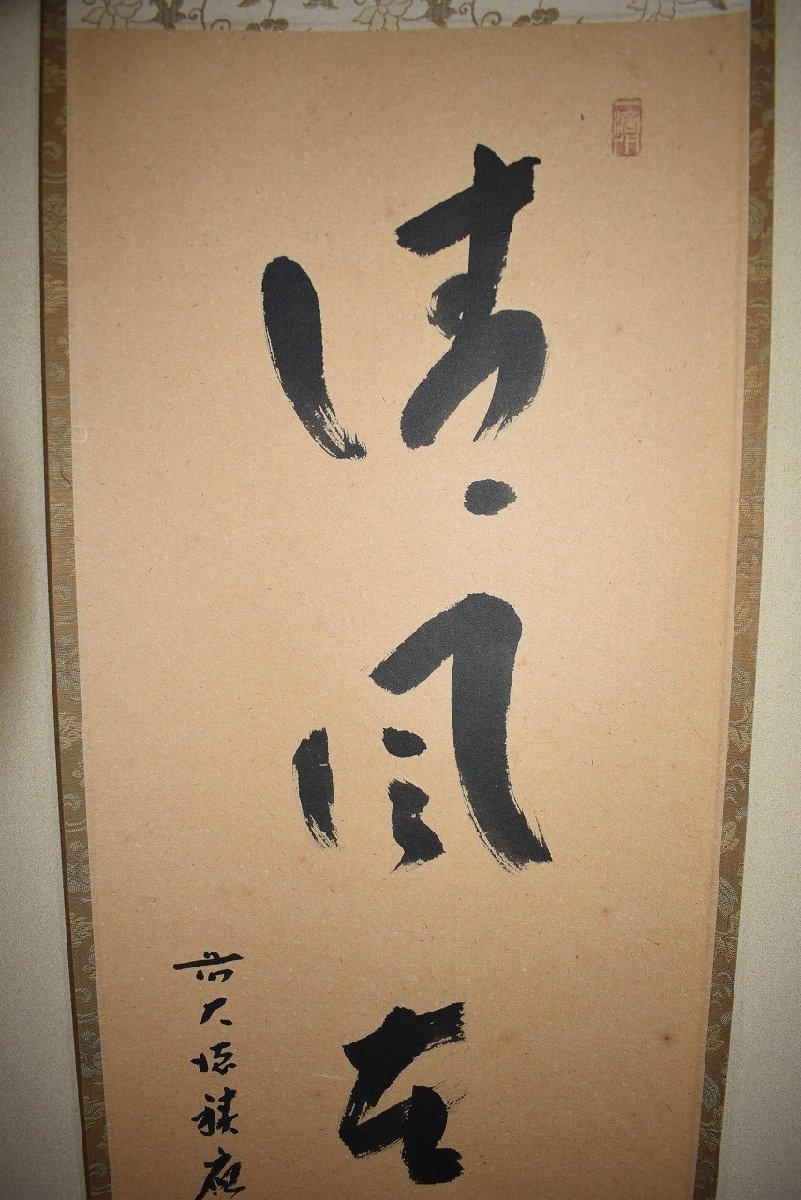 清風在
前大徳積應